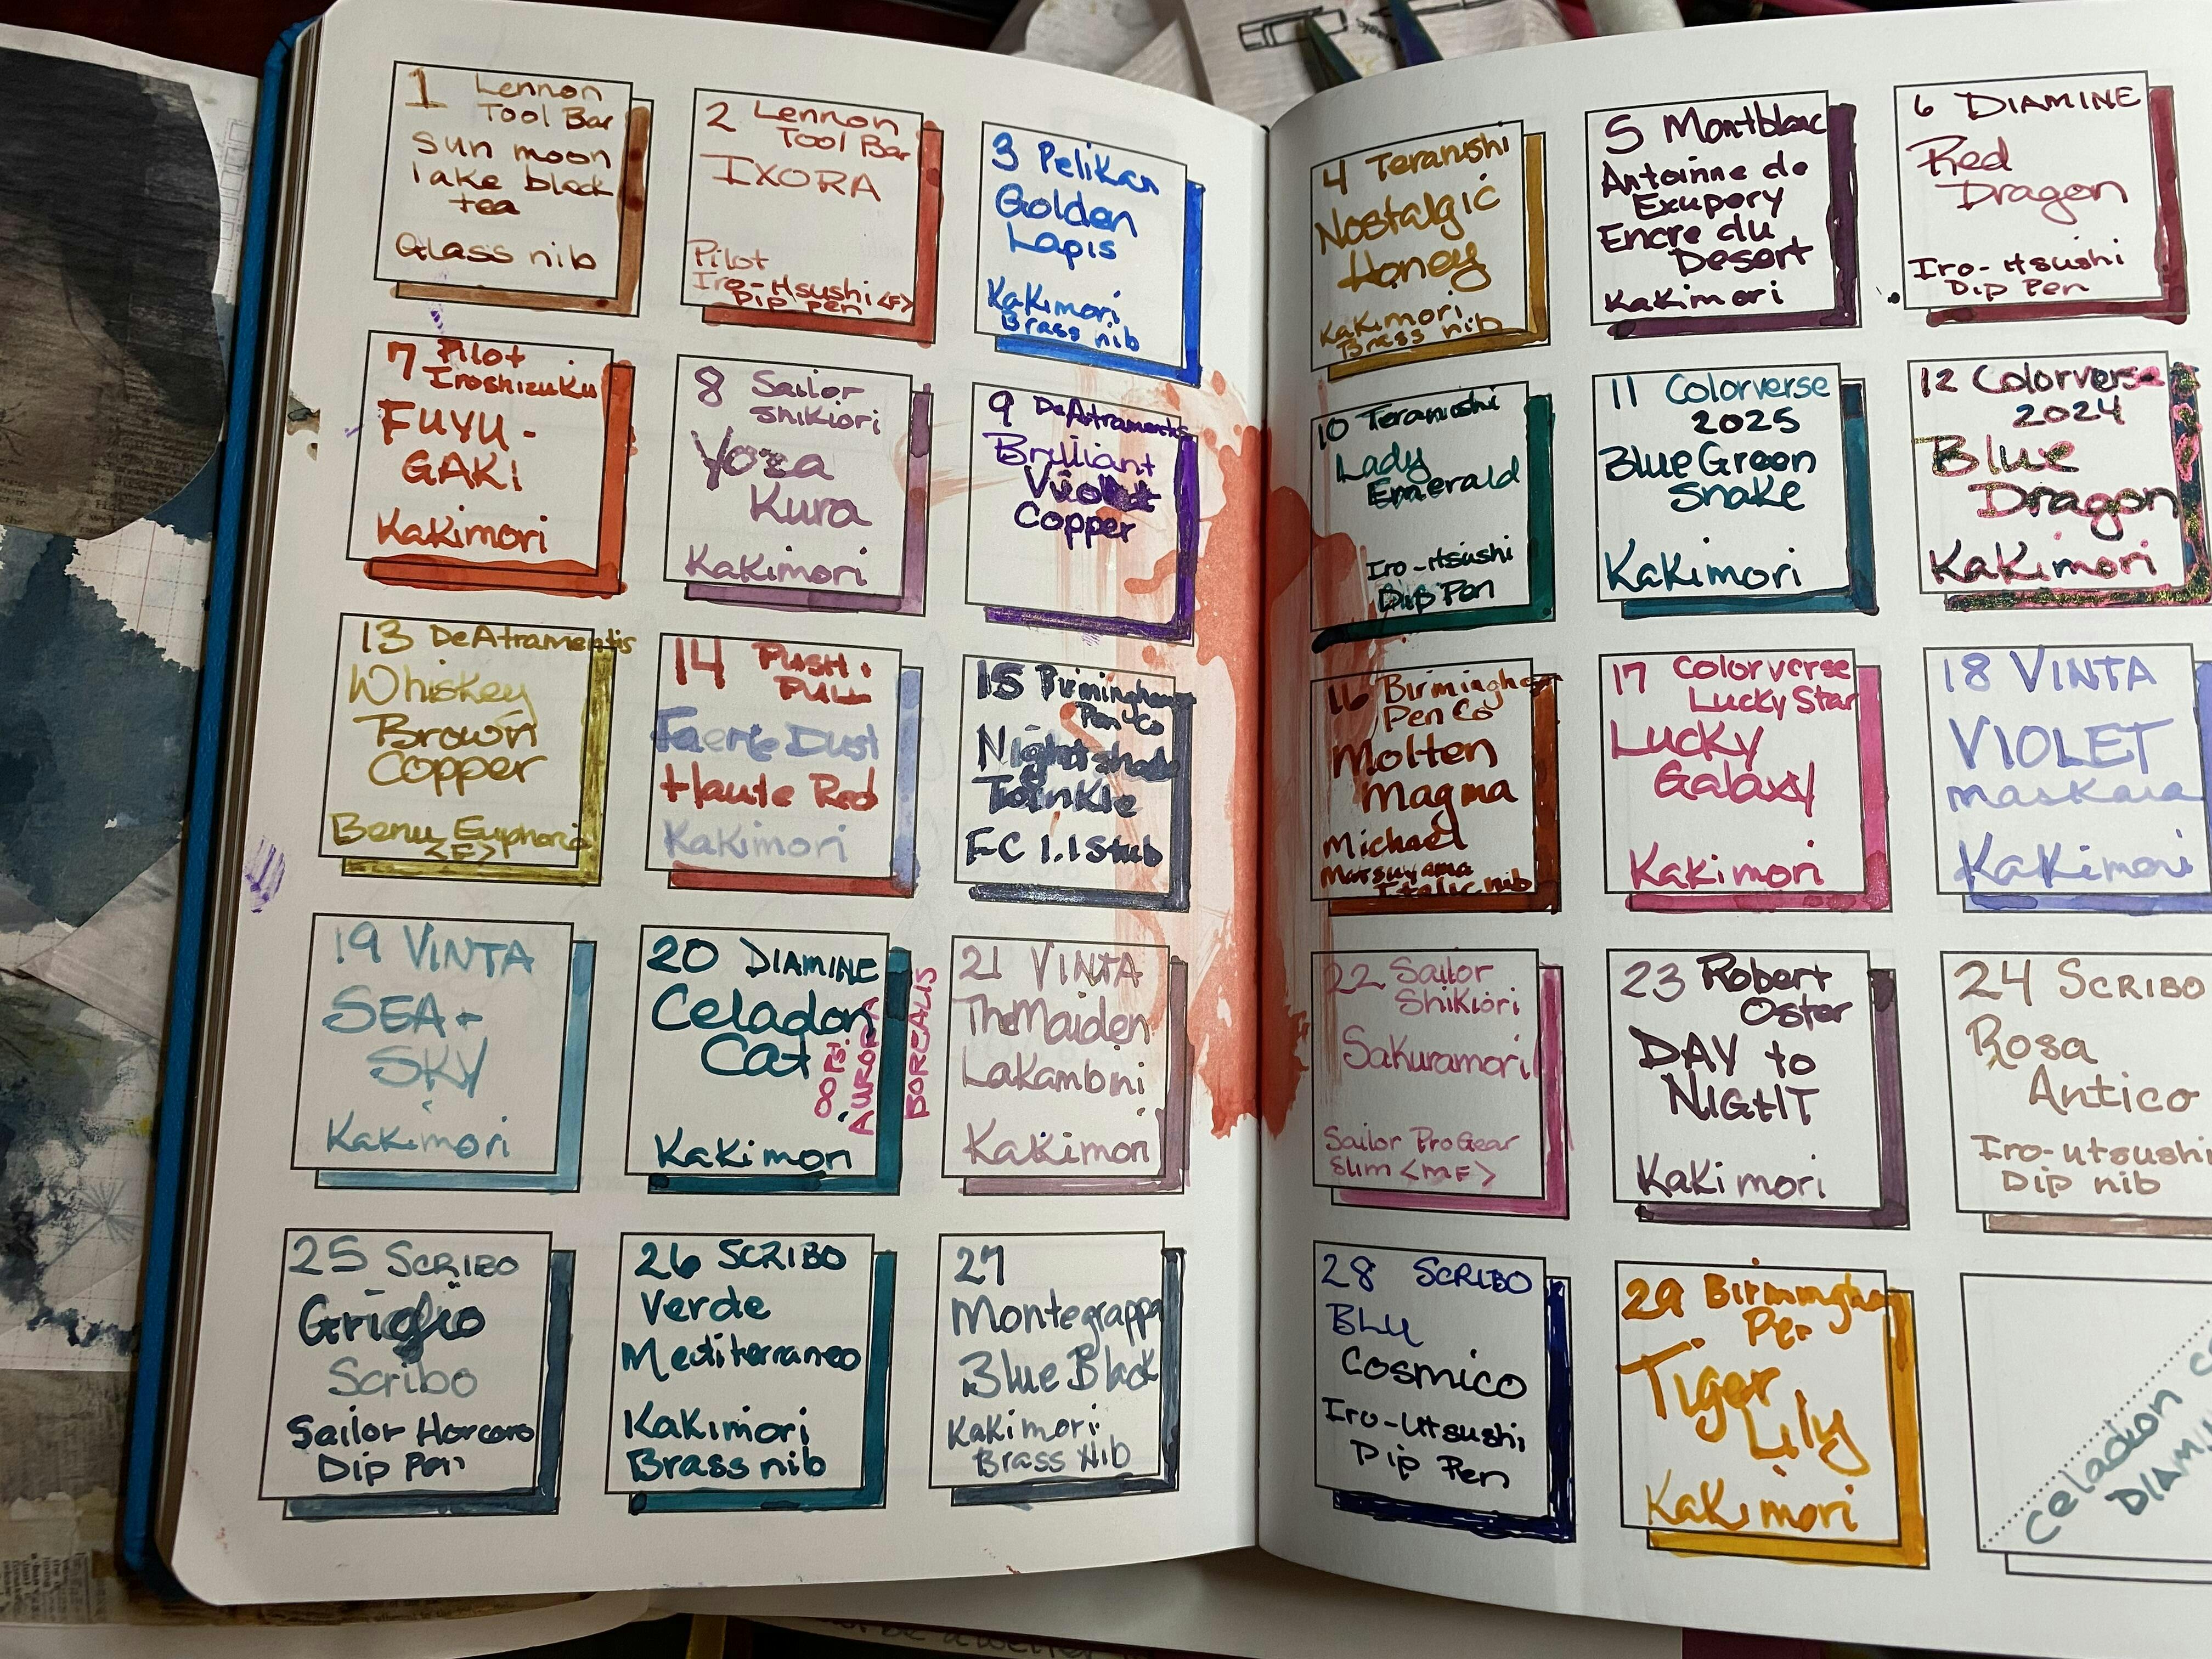 1 Lennon
Tool Bar
Sun moon
lake black
tea
Glass nib
2 Lennon
Tool Bar
IXORA
Pilot
Iro-Utsushi <F>
Dip pen
3 Pelikan
Golden
Lapis
Kakimori
Brass nib
4 Teranishi
Nostalgic
Honey
Kakimori
Brass nib
5 Montblanc
Antoinne de
Exupery
Encre du
Desert
Kakimori
6 DIAMINE
Red
Dragon
Iro-Utsushi
Dip Pen
7 Pilot
Iroshizuku
FUYU-
GAKI
Kakimori
8 Sailor
Shikiori
Yoza
Kura
Kakimori
9 DeAtramentis
Brilliant
Violet
Copper
10 Teranishi
Lady
Emerald
Iro-Utsushi
Dip Pen
11 Colorverse
2025
Blue Green
Snake
Kakimori
12 Colorverse
2024
Blue
Dragon
Kakimori
13 DeAtramentis
Whiskey
Brown
Copper
Benu Euphoria
<F>
14 PUSH +
PULL
Faerie Dust
Haute Red
Kakimori
15 Birmingham
Pen Co
Nightshade
Twinkle
FC 1.1 Stub
16 Birmingham
Pen Co
Molten
Magma
Michael
Matsuyama
Italic nib
17 Colorverse
Lucky Star
Lucky
Galaxy
Kakimori
18 VINTA
VIOLET
maskara
Kakimori
19 VINTA
SEA +
SKY
Kakimori
20 DIAMINE
Celadon
Cat
Kakimori
OOPS!
AURORA
BOREALIS
21 VINTA
The Maiden
Lakambini
Kakimori
22 Sailor
Shikiori
Sakuramori
Sailor ProGear
Slim <MF>
23 Robert
Oster
DAY to
NIGHT
Kakimori
24 SCRIBO
Rosa
Antico
Iro-utsushi
Dip nib
25 SCRIBO
Grigio
Scribo
Sailor Hocoro
Dip Pen
26 SCRIBO
Verde
Mediterraneo
Kakimori
Brass nib
27
Montegrappa
Blue Black
Kakimori
Brass Nib
28 SCRIBO
BLU
Cosmico
Iro-Utsushi
Dip Pen
29 Birmingham
Pen
Tiger
Lily
Kakimori
Celadon